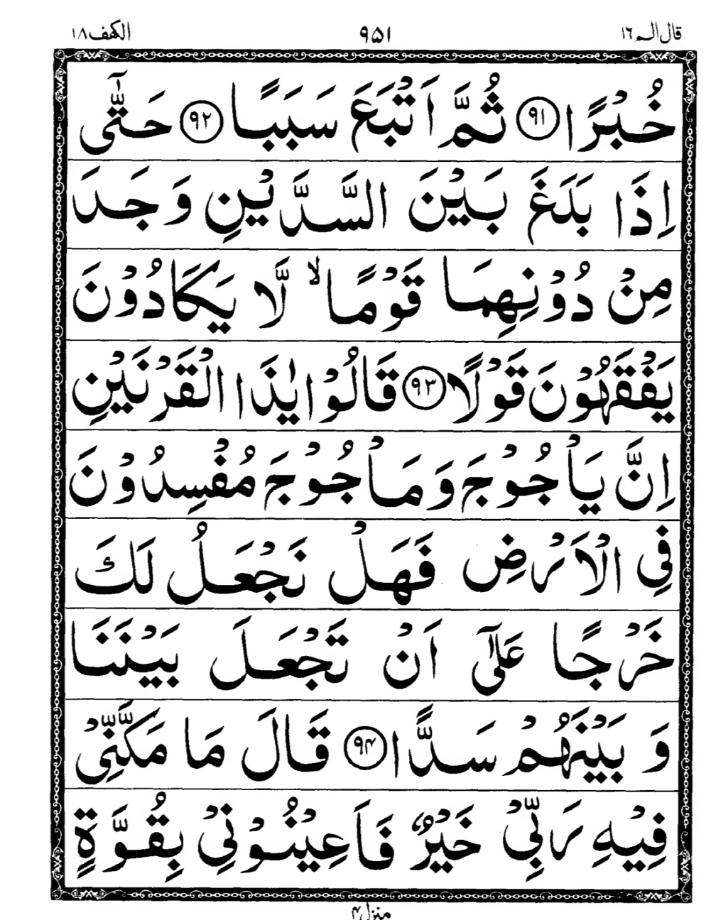 قال الم ١٦ ٩٥١ الكهف ١٨
خُبْرًا ﴿٩١﴾ ثُمَّ اَتْبَعَ سَبَبًا ﴿٩٢﴾ حَتّٰٓى
اِذَا بَلَغَ بَيْنَ السَّدَّيْنِ وَجَدَ
مِنْ دُوْنِهِمَا قَوْمًا ۙ لَّا يَكَادُوْنَ
يَفْقَهُوْنَ قَوْلًا ﴿٩٣﴾ قَالُوْا يٰذَا الْقَرْنَيْنِ
اِنَّ يَاْجُوْجَ وَمَاْجُوْجَ مُفْسِدُوْنَ
فِي الْاَرْضِ فَهَلْ نَجْعَلُ لَكَ
خَرْجًا عَلٰٓى اَنْ تَجْعَلَ بَيْنَنَا
وَ بَيْنَهُمْ سَدًّا ﴿٩٤﴾ قَالَ مَا مَكَّنِّيْ
فِيْهِ رَبِّيْ خَيْرٌ فَاَعِيْنُوْنِيْ بِقُوَّةٍ
منزل ٤